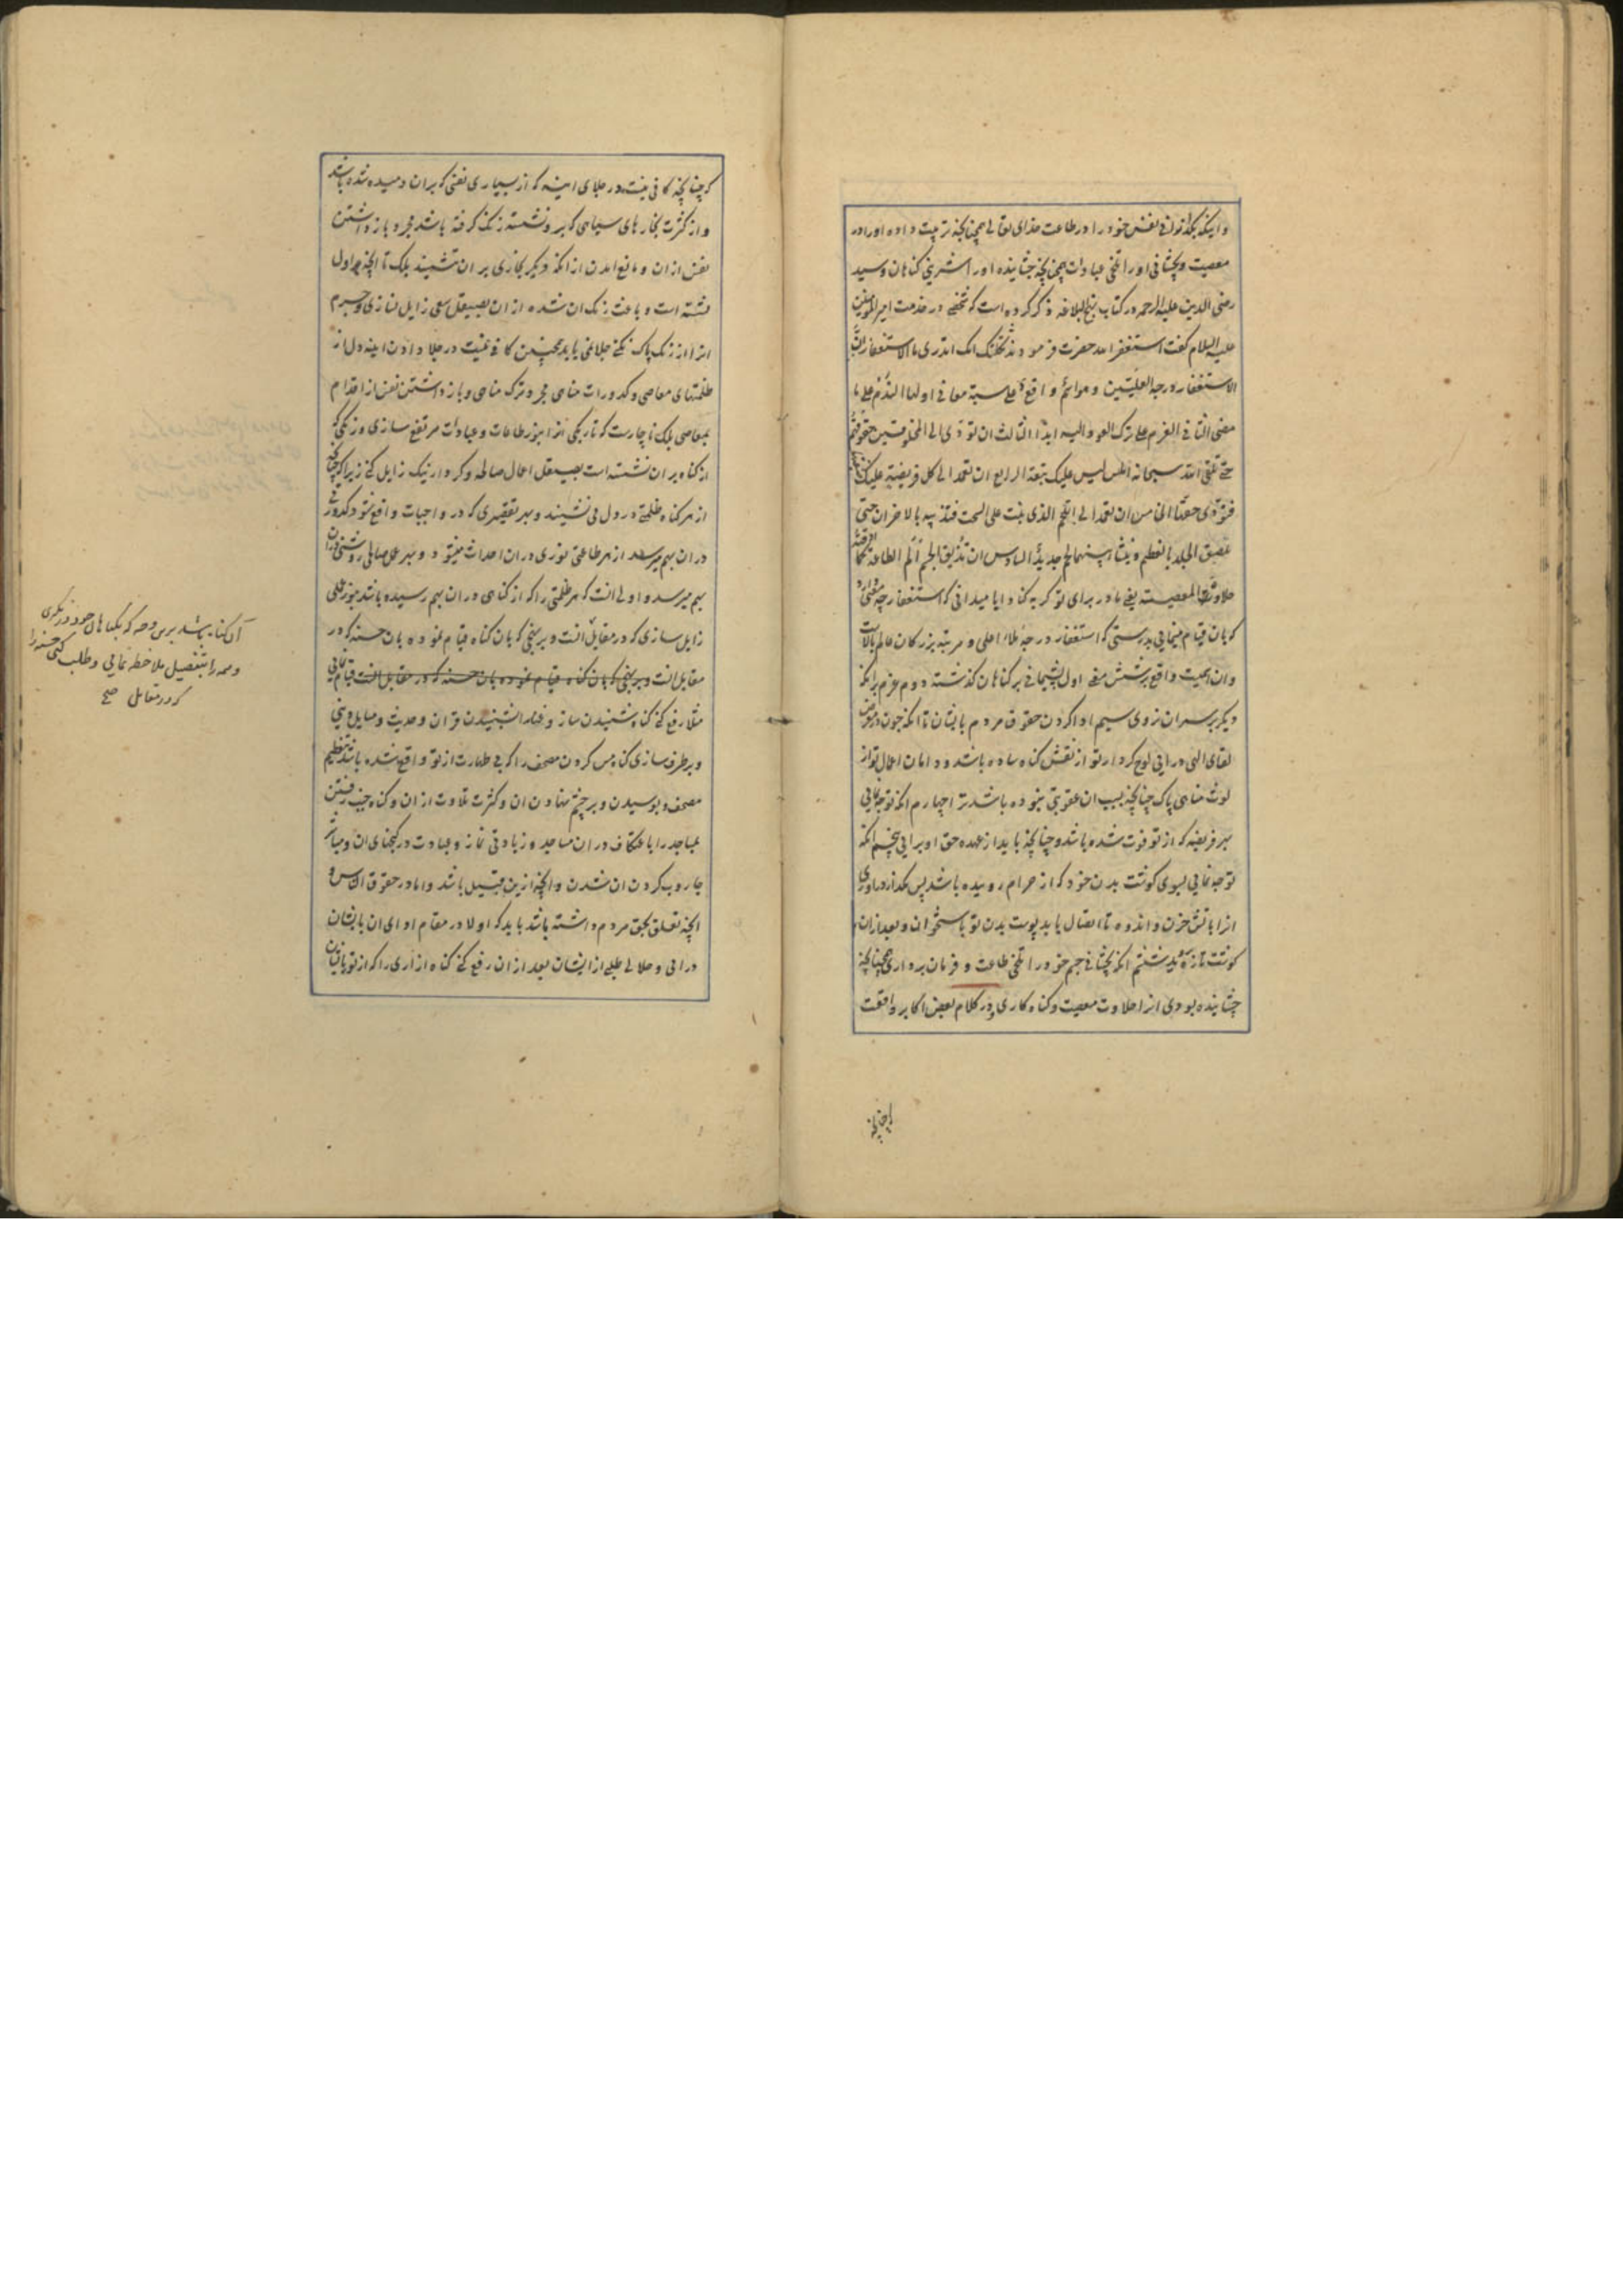 و اینکه بگذرانی نفس خود را در طاعت خدای تعالی همچنانچه تربیت داده او را در
معصیت و بچشانی او را تلخی عبادات همچنانچه چشانیده او را شیرینی گناهان و سید
رضی الدین علیه الرحمه در کتاب نهج البلاغه ذکر کرده است که شخصی در خدمت امیر المومنین
علیه السلام گفت استغفر الله حضرت فرمود ثکلتک امک اتدری ما الاستغفار ان
الاستغفار درجه العلیین و هو اسم واقع علی ستة معانی اولها الندم علی ما
مضی الثانی العزم علی ترک العود الیه ابدا الثالث ان تؤدی الی المخلوقین حقوقهم
حتی تلقی الله سبحانه املس لیس علیک تبعة الرابع ان تعمد الی کل فریضة علیک
فتؤدی حقها الخامس ان تعمد الی اللحم الذی نبت علی السحت فتذیبه بالاحزان حتی
تلصق الجلد بالعظم و ینشا بینهما لحم جدید السادس ان تذیق الجسم الم الطاعة کما اذقته
حلاوة المعصیة یعنی مادر برای تو گریه کناد ایا میدانی که استغفار چه معنی دارد
که بان قیام مینمایی بدرستی که استغفار درجه ملاء اعلی و مرتبه بزرکان عالم بالاست
و ان اسمیست واقع بر شش معنی اول پشیمانی بر کناهان کذشته دوم عزم بر انکه
دیکر بر سر ان نروی سیم ادا کردن حقوق مردم بایشان تا انکه چون در معرض
لقای الهی درایی لوح کردار تو از نقش کناه ساده باشد و دامان اعمال تو از
لوث مناهی پاک چنانچه بسبب ان عقوبتی نبوده باشد ترا چهارم انکه توجه نمایی
بهر فریضه که از تو فوت شده باشد و چنانچه باید از عهده حق او برایی پنجم انکه
توجه نمایی بسوی کوشت بدن خود که از حرام روییده باشد پس بکدازاوری
انرا باتش حزن و اندوه تا اتصال یابد پوست بدن تو باستخوان و بعد از ان
کوشت تازه بروید ششم انکه بچشانی جسم خود را تلخی طاعت و فرمان برداری همچنانچه
چشانیده بودی انرا حلاوت معصیت و کناه کاری و در کلام بعض اکابر واقعست
که چنانچه
که چنانچه کافی نیست در جلای اینه که از بسیاری نفسی که بران دمیده شده باشد
و از کثرت بخارهای سیاهی که بر و نشسته زنک کرفته باشد مجرد باز داشتن
نفس از ان و مانع امدن از انکه دیکر بخاری بر ان نشیند بلکه تا انچه در اول
نشسته است و باعث زنک ان شده از ان بصیقل سعی زایل نسازی و جرم
انرا از زنک پاک نکنی جلا نمی یابد همچنین کافی نیست در جلا دادن اینه دل از
ظلمتهای معاصی و کدورات مناهی مجرد ترک مناهی و باز داشتن نفس از اقدام
بمعاصی بلکه ناچارست که تاریکی انرا بنور طاعات و عبادات مرتفع سازی و زنکی که
از کناه بر ان نشسته است بصیقل اعمال صالحه و کردار نیک زایل کنی زیرا که چنانچه
از هر کناه ظلمتی در دل می نشیند و بهر تقصیری که در واجبات واقع شود کدورتی
در ان بهم میرسد از هر طاعتی نوری در ان احداث میشود و بهر عمل صالحی روشنی در ان
بهم میرسد و اولی انست که هر ظلمتی را که از کناهی در ان بهم رسیده باشد بنور عملی
زایل سازی که در مقابل انست و بر نهجی که بان کناه قیام نموده بان حسنه که در
مقابل انست و بر نهجی که بان کناه قیام نموده بان حسنه که در مقابل انست قیام نمایی
مثلا رفع کنی کناه شنیدن ساز و غنا را بشنیدن قران و حدیث و مسایل دینی
و بر طرف سازی کناه مس کردن مصحف را که بی طهارت از تو واقع شده باشد بتعظیم
مصحف و بوسیدن و بر چشم نهادن ان و کثرت تلاوت از ان و کناه جنب رفتن
بمساجد را باعتکاف در ان مساجد و زیادتی نماز و عبادت در کنجهای ان و مباشر
جاروب کردن ان شدن و انچه ازین قبیل باشد و اما در حقوق الناس و
انچه تعلق بحق مردم داشته باشد باید که اولا در مقام ادای ان بایشان
درایی و حلالی طلبی از ایشان بعد از ان رفع کنی کناه ازاری را که از تو بایشان
آن کناه باشد برین وجه که بکناهان خود در نکری
و همه را بتفصیل ملاحظه نمایی و طلب کنی حسنه را
که در مقابل صح